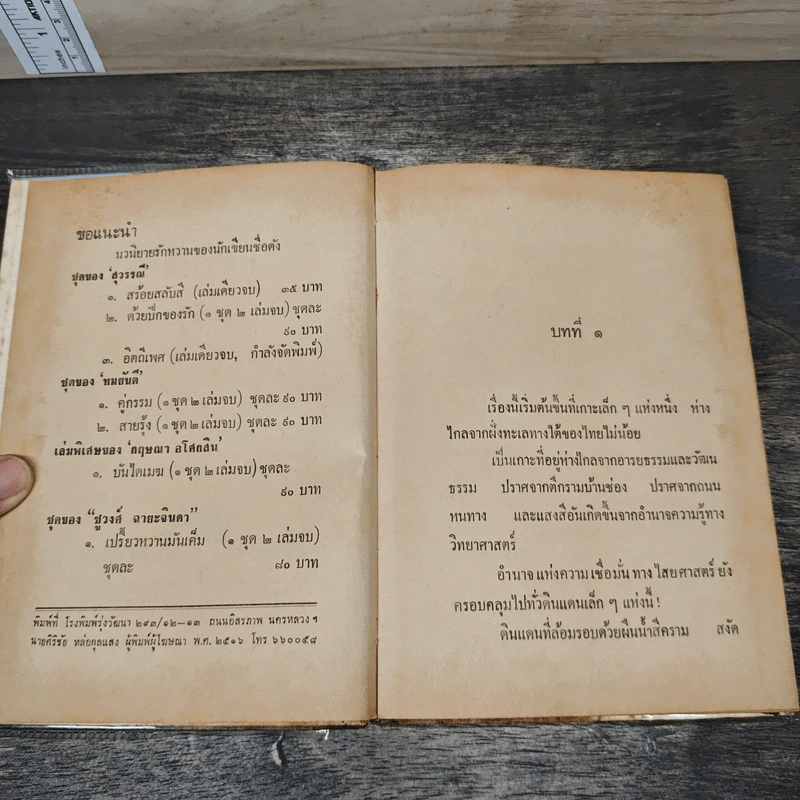 ขอแนะนำ
นวนิยายรักหวานของนักเขียนชื่อดัง
ชุดของ 'สุวรรณี'
๑. สร้อยสลับสี (เล่มเดียวจบ) ๓๕ บาท
๒. ด้วยปีกของรัก (๑ ชุด ๒ เล่มจบ) ชุดละ
๙๐ บาท
๓. อิตถีเพศ (เล่มเดียวจบ, กำลังจัดพิมพ์)
ชุดของ 'ทมยันตี'
๑. คู่กรรม (๑ ชุด ๒ เล่มจบ) ชุดละ ๙๐ บาท
๒. สายรุ้ง (๑ ชุด ๒ เล่มจบ) ชุดละ ๙๐ บาท
เล่มพิเศษของ 'กฤษณา อโศกสิน'
๑. บันไดเมฆ (๑ ชุด ๒ เล่มจบ) ชุดละ
๙๐ บาท
ชุดของ “ชูวงศ์ ฉายะจินดา”
๑. เปรี้ยวหวานมันเค็ม (๑ ชุด ๒ เล่มจบ)
ชุดละ ๘๐ บาท
พิมพ์ที่ โรงพิมพ์รุ่งวัฒนา ๒๙๓/๑๒–๑๓ ถนนอิสรภาพ นครหลวง ฯ
นายศิริชัย หล่อกุลแสง ผู้พิมพ์ผู้โฆษณา พ.ศ. ๒๕๑๖ โทร ๖๖๐๐๕๘
บทที่ ๑
เรื่องนี้เริ่มต้นขึ้นที่เกาะเล็ก ๆ แห่งหนึ่ง ห่าง
ไกลจากฝั่งทะเลทางใต้ของไทยไม่น้อย
เป็นเกาะที่อยู่ห่างไกลจากอารยธรรมและวัฒน
ธรรม ปราศจากตึกรามบ้านช่อง ปราศจากถนน
หนทาง และแสงสีอันเกิดขึ้นจากอำนาจความรู้ทาง
วิทยาศาสตร์
อำนาจแห่งความเชื่อมั่นทางไสยศาสตร์ยัง
ครอบคลุมไปทั่วดินแดนเล็ก ๆ แห่งนี้ !
ดินแดนที่ล้อมรอบด้วยผืนน้ำสีคราม สงัด